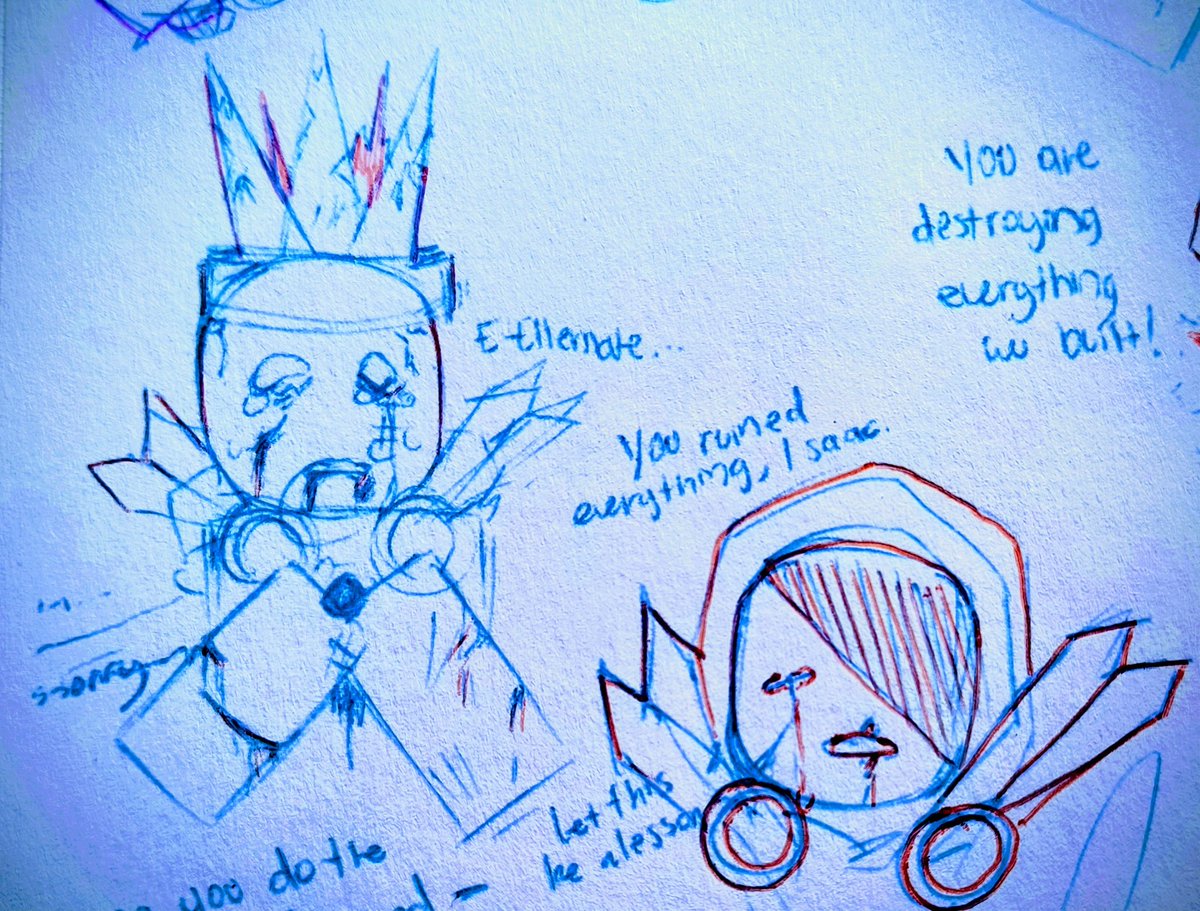 You are
destroying
everything
we built!
E-Ellernate...
You ruined
everything, Isaac.
ssorry
Let this
be a lesson
you do the